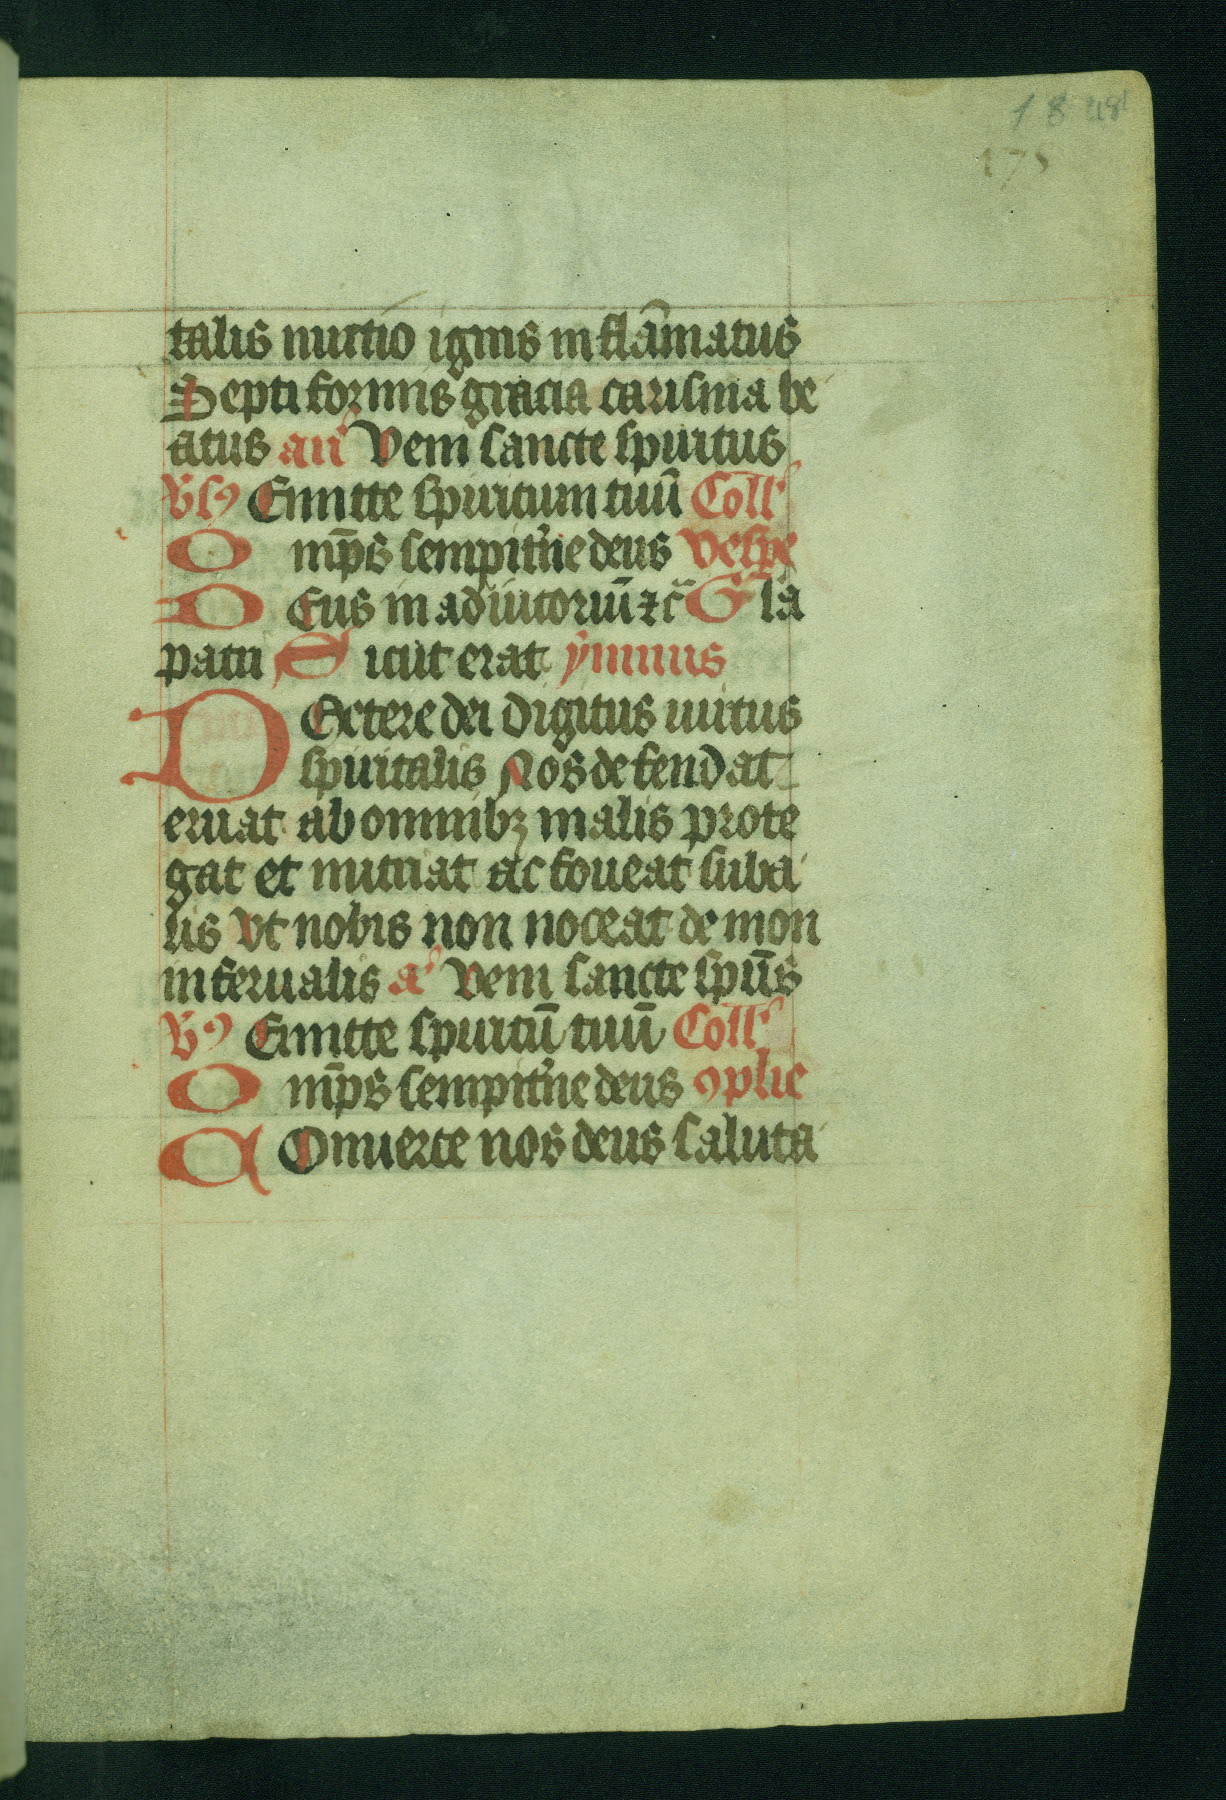 1848
175
talis nuncio ignis inflāmatus
Septiformis gracia carisma be
atus an̄ Veni sancte spiritus
Vsꝯ Emitte spiritum tuū Coll'
Omp̄s sempit'ne deus Vespe
DEus in adiutoriū ⁊c̄ Gla
patri Sicut erat ymnus
DExtere dei digitus uirtus
spiritalis Nos defendat
eruat ab omnibꝫ malis prote
gat et nutriat ac foueat sub a
lis Vt nobis non noceat demon
infernalis a' Veni sancte spūs
Vꝯ Emitte spiritū tuū Coll'
Omp̄s sempit'ne deus ꝯplie
COnuerte nos deus saluta